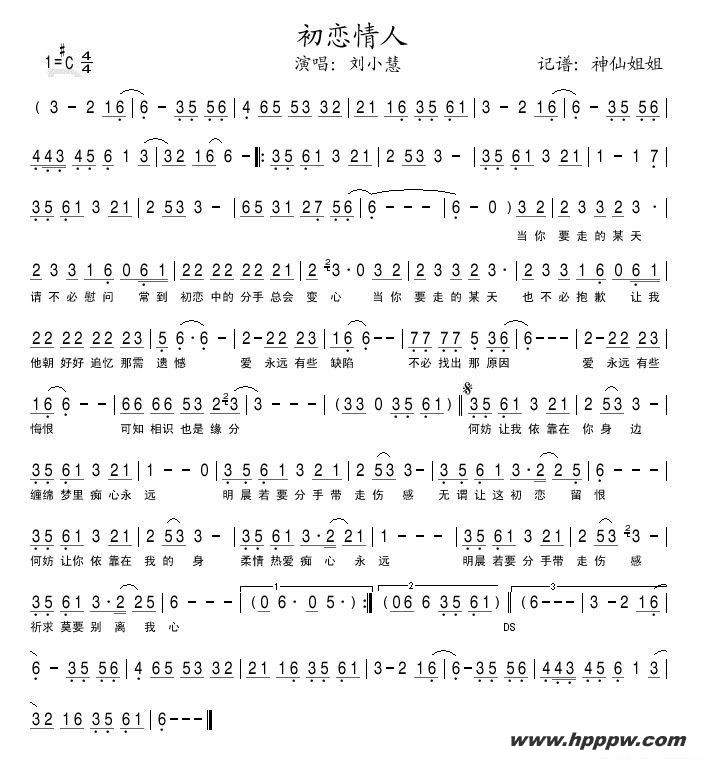 初恋情人
1=#C 4/4 演唱：刘小慧 记谱：神仙姐姐
( 3 - 2 16 | 6 - 35 56 | 4 65 53 32 | 24 16 35 61 | 3 - 2 16 | 6 - 35 56 |
443 45 6 1 3 | 32 16 6 - |: 35 61 3 21 | 2 53 3 - | 35 61 3 21 | 1 - 1 7 |
35 61 3 21 | 2 53 3 - | 65 31 27 56 | 6 - - - | 6 - 0 ) 3 2 | 3 2 3 2 3 ·
当 你 要 走 的 某 天
2 3 3 1 6 0 6 1 | 22 22 22 21 | 2 2 3 · 0 32 | 32 3 2 3 · | 2 3 3 1 6 0 6 1
请 不 必 慰 问 常 到 初恋 中的 分手 总会 变 心 当 你 要 走 的 某 天 也 不 必 抱歉 让 我
22 22 22 23 | 5 6 · 6 - | 2 - 22 23 | 16 6 - - | 77 77 5 36 | 6 - - - | 2 - 22 23
他朝 好好 追忆 那需 遗 憾 爱 永远 有些 缺陷 不必 找出 那 原因 爱 永远 有些
16 6 - - | 66 66 53 2 2 3 | 3 - - - | (33 0 35 61) || 35 61 3 21 | 2 53 3 -
悔恨 可知 相识 也是 缘 分 何妨 让我 依 靠在 你 身 边
35 61 3 21 | 1 - - 0 | 35 61 3 21 | 2 53 3 - | 35 61 3 · 2 2 5 | 6 - - -
缠绵 梦里 痴 心永 远 明晨 若要 分 手带 走 伤 感 无谓 让这 初 恋 留 恨
35 61 3 21 | 2 53 3 - | 35 61 3 · 2 21 | 1 - - - | 35 61 3 21 | 2 53 2 3 -
何妨 让你 依 靠在 我 的 身 柔情 热爱 痴 心 永 远 明晨 若要 分 手带 走 伤 感
35 61 3 · 2 25 | 6 - - - | 1 (0 6 · 0 5 · ) :| 2 (06 6 35 61) | 3 (6 - - - | 3 - 2 16
祈求 莫要 别 离 我 心 DS
6 - 35 56 | 4 65 53 32 | 24 16 35 61 | 3 - 2 16 | 6 - 35 56 | 443 45 6 1 3
32 16 35 61 | 6 - - - ||
www.hpppw.com